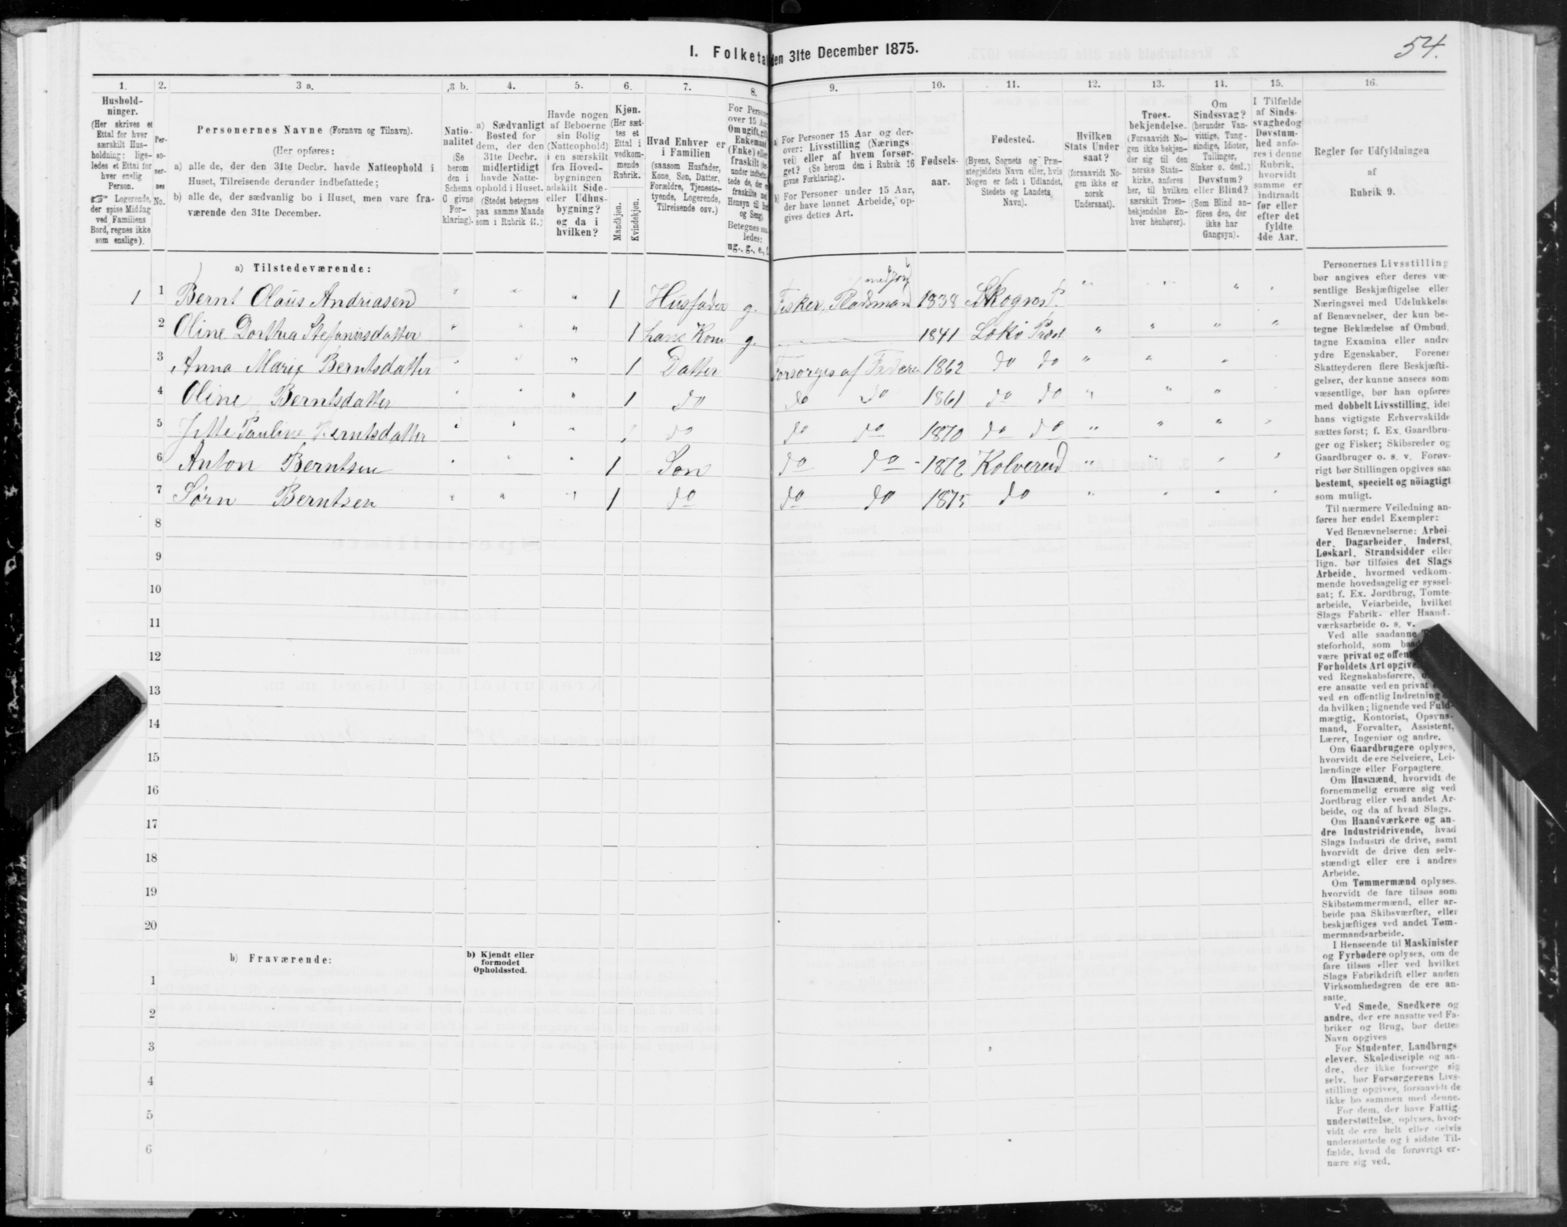 I. Folketal den 31te December 1875.
54.
1.
2.
3 a.
3 b.
4.
5.
6.
7.
8.
9.
10.
11.
12.
13.
14.
15.
16.
Hushold-
ninger.
(Her skrives et
Ettal for hver
særskilt Hus-
holdning; lige-
ledes et Ettal for
hver enslig
Person.
Logerende,
der spise Middag
ved Familiens
Bord, regnes ikke
som enslige).
Per-
so-
ner-
nes
No.
Personernes Navne (Fornavn og Tilnavn).
(Her opføres:
a) alle de, der den 31te Decbr. havde Natteophold i
Huset, Tilreisende derunder indbefattede;
b) alle de, der sædvanlig bo i Huset, men vare fra-
værende den 31te December.
Natio-
nalitet
(Se
herom
den i
Schema
0 givne
For-
klaring).
a) Sædvanligt
Bosted for
dem, der den
31te Decbr.
midlertidigt
havde Natte-
ophold i Huset.
(Stedet betegnes
paa samme Maade
som i Rubrik 11.)
Havde nogen
af Beboerne
sin Bolig
(Natteophold)
i en særskilt
fra Hoved-
bygningen
adskilt Side-
eller Udhus-
bygning?
og da i
hvilken?
Kjøn.
(Her sæt-
tes et
Ettal i
vedkom-
mende
Rubrik.
Mandkjøn.
Kvindekjøn.
Hvad Enhver er
i Familien
(saasom Husfader,
Kone, Søn, Datter,
Forældre, Tjeneste-
tyende, Logerende,
Tilreisende osv.)
a) For Personer 15 Aar og der-
over: Livsstilling (Nærings-
vei) eller af hvem forsør-
get? (Se herom den i Rubrik 16
givne Forklaring).
b) For Personer under 15 Aar,
der have lønnet Arbeide, op-
gives dettes Art.
Fødsels-
aar.
Fødested.
(Byens, Sognets og Præ-
stegjeldets Navn eller, hvis
Nogen er født i Udlandet,
Stedets og Landets
Navn).
Hvilken
Stats Under
saat?
(forsaavidt No-
gen ikke er
norsk
Undersaat).
Troes-
bekjendelse.
(Forsaavidt No-
gen ikke bekjen-
der sig til den
norske Stats-
kirke, anføres
her, til hvilken
særskilt Troes-
bekjendelse En-
hver henhører).
Om
Sindssvag?
(herunder Van-
vittige, Tung-
sindige, Idioter,
Tullinger,
Sinker o. desl.)
Døvstum?
eller Blind?
(Som Blind an-
føres den, der
ikke har
Gangsyn).
I Tilfælde
af Sinds-
svaghed og
Døvstum-
hed anfø-
res i denne
Rubrik,
hvorvidt
samme er
indtraadt
før eller
efter det
fyldte
4de Aar.
Regler for Udfyldningen
af
Rubrik 9.
a) Tilstedeværende:
1 1 Bernt Olaus Andriasen " " " 1 Husfader g. Fisker, Pladsmand med jord 1838 Skogns P. " " " "
2 Oline Dorthea Stefanusdatter " " " 1 hans Kone g. 1841 Lekø Præst " " " "
3 Anna Marie Berntsdatter " " " 1 Datter Forsørges af Fadern 1862 do do " " " "
4 Oline Berntsdatter " " " 1 do do do 1861 do do " " "
5 Jette Pauline Berntsdatter " " " 1 do do do 1870 do do " " " "
6 Anton Berntsen " " " 1 Søn do do 1872 Kolvereid " " " "
7 Sørn Berntsen " " " 1 do do do 1875 do " " " "
8
9
10
11
12
13
14
15
16
17
18
19
20
b) Fraværende:
b) Kjendt eller
formodet
Opholdssted.
1
2
3
4
5
6
Personernes Livsstilling
bør angives efter deres væ-
sentlige Beskjæftigelse eller
Næringsvei med Udelukkelse
af Benævnelser, der kun be-
tegne Beklædelse af Ombud,
tagne Examina eller andre
ydre Egenskaber. Forener
Skatteyderen flere Beskjæfti-
gelser, der kunne ansees som
væsentlige, bør han opføres
med dobbelt Livsstilling, idet
hans vigtigste Erhvervskilde
sættes først; f. Ex. Gaardbru-
ger og Fisker; Skibsreder og
Gaardbruger o. s. v. Forøv-
rigt bør Stillingen opgives saa
bestemt, specielt og nöiagtigt
som muligt.
Til nærmere Veiledning an-
føres her endel Exempler:
Ved Benævnelserne: Arbei-
der, Dagarbeider, Inderst,
Løskarl, Strandsidder eller
lign. bør tilføies det Slags
Arbeide, hvormed vedkom-
mende hovedsagelig er syssel-
sat; f. Ex. Jordbrug, Tomte-
arbeide, Veiarbeide, hvilket
Slags Fabrik- eller Haand-
værksarbeide o. s. v.
Ved alle saadanne
steforhold, som
være privat og
Forholdets Art
ved Regnskabsførere,
ere ansatte ved en privat
ved en offentlig Indretning
da hvilken; lignende ved Fuld-
mægtig, Kontorist, Opsyns-
mand, Forvalter, Assistent,
Lærer, Ingeniør og andre.
Om Gaardbrugere oplyses,
hvorvidt de ere Selveiere, Lei-
lændinge eller Forpagtere.
Om Husmænd, hvorvidt de
fornemmelig ernære sig ved
Jordbrug eller ved andet Ar-
beide, og da af hvad Slags.
Om Haandværkere og an-
dre Industridrivende, hvad
Slags Industri de drive, samt
hvorvidt de drive den selv-
stændigt eller ere i andres
Arbeide.
Om Tømmermænd oplyses,
hvorvidt de fare tilsøs som
Skibstømmermænd, eller ar-
beide paa Skibsværfter, eller
beskjæftiges ved andet Tøm-
mermandsarbeide.
I Henseende til Maskinister
og Fyrbødere oplyses, om de
fare tilsøs eller ved hvilket
Slags Fabrikdrift eller anden
Virksomhedsgren de ere an-
satte.
Ved Smede, Snedkere og
andre, der ere ansatte ved Fa-
briker og Brug, bør dettes
Navn opgives
For Studenter, Landbrugs-
elever, Skoledisciple og an-
dre, der ikke forsørge sig
selv, bør Forsørgerens Livs-
stilling opgives, forsaavidt de
ikke bo sammen med denne.
For dem, der have Fattig-
understøttelse, oplyses, hvor-
vidt de ere helt eller delvis
understøttede og i sidste Til-
fælde, hvad de forøvrigt er-
nære sig ved.